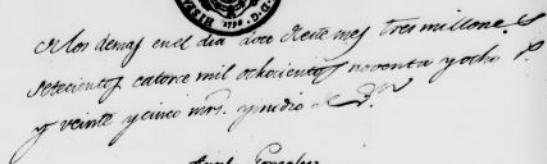 los demas en el dia doce de este mes tres millones
setecientos catorce mil ochocientos noventa y ocho r.
y veinte y cinco mrs. y medio de v.n
Gonzalez